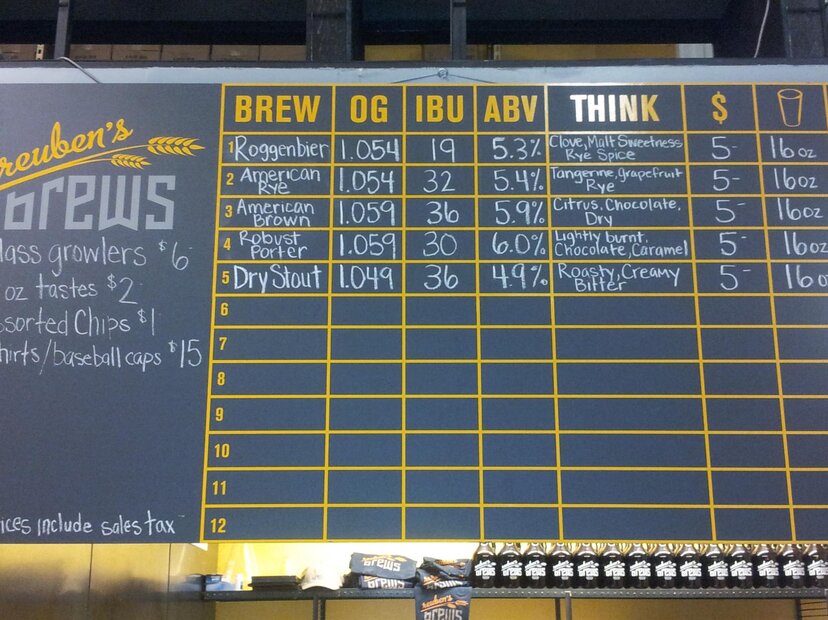 reuben's
brews
lass growlers $6
oz tastes $2
ssorted Chips $1
hirts/baseball caps $15
ices include sales tax
BREW OG IBU ABV THINK $
1 Roggenbier 1.054 19 5.3% Clove, Malt Sweetness Rye Spice 5- 16oz
2 American Rye 1.054 32 5.4% Tangerine, grapefruit Rye 5- 16oz
3 American Brown 1.059 36 5.9% Citrus, Chocolate, Dry 5- 16oz
4 Robust Porter 1.059 30 6.0% Lightly burnt, Chocolate, Caramel 5- 16oz
5 Dry Stout 1.049 36 4.9% Roasty, Creamy Bitter 5- 16o
6
7
8
9
10
11
12
brews
reuben's
brews